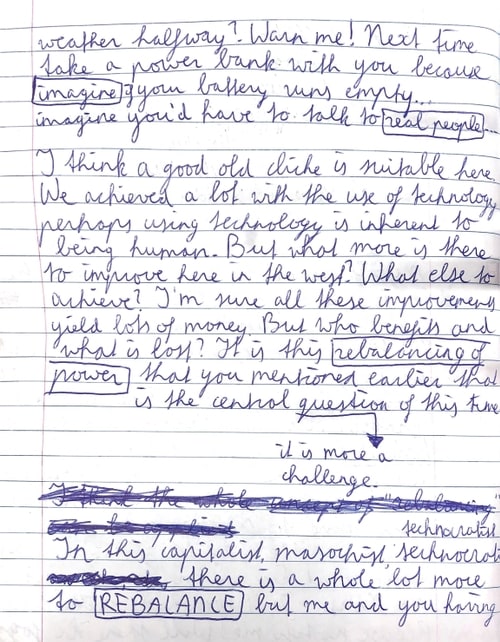 weather halfway? Warn me! Next time
take a power bank with you because
imagine if your battery runs empty...
imagine you'd have to talk to real people...
I think a good old cliche is suitable here
We achieved a lot with the use of technology
perhaps using technology is inherent to
being human. But what more is there
to improve here in the west? What else to
achieve? I'm sure all these improvements
yield lots of money. But who benefits and
what is lost? It is this rebalancing of
power that you mentioned earlier that
is the central question of this time
it is more a
challenge.
I think the whole concept of "rebalancing"
can be applied
technocratist
In this capitalist, masochist, technocrat
there is a whole lot more
to REBALANCE but me and you having